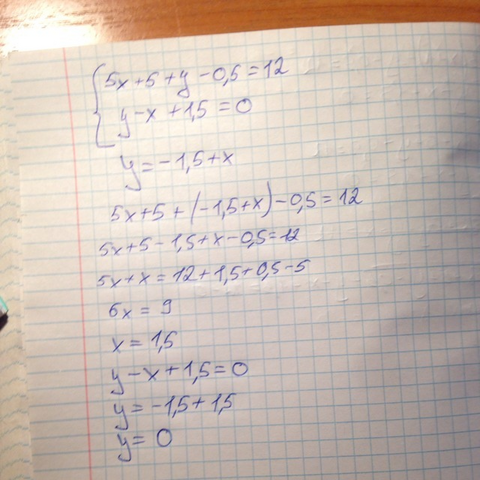 5x+5+y-0,5=12
y-x+1,5=0
y=-1,5+x
5x+5+(-1,5+x)-0,5=12
5x+5-1,5+x-0,5=12
5x+x=12+1,5+0,5-5
6x=9
x=1,5
y-x+1,5=0
y=-1,5+1,5
y=0